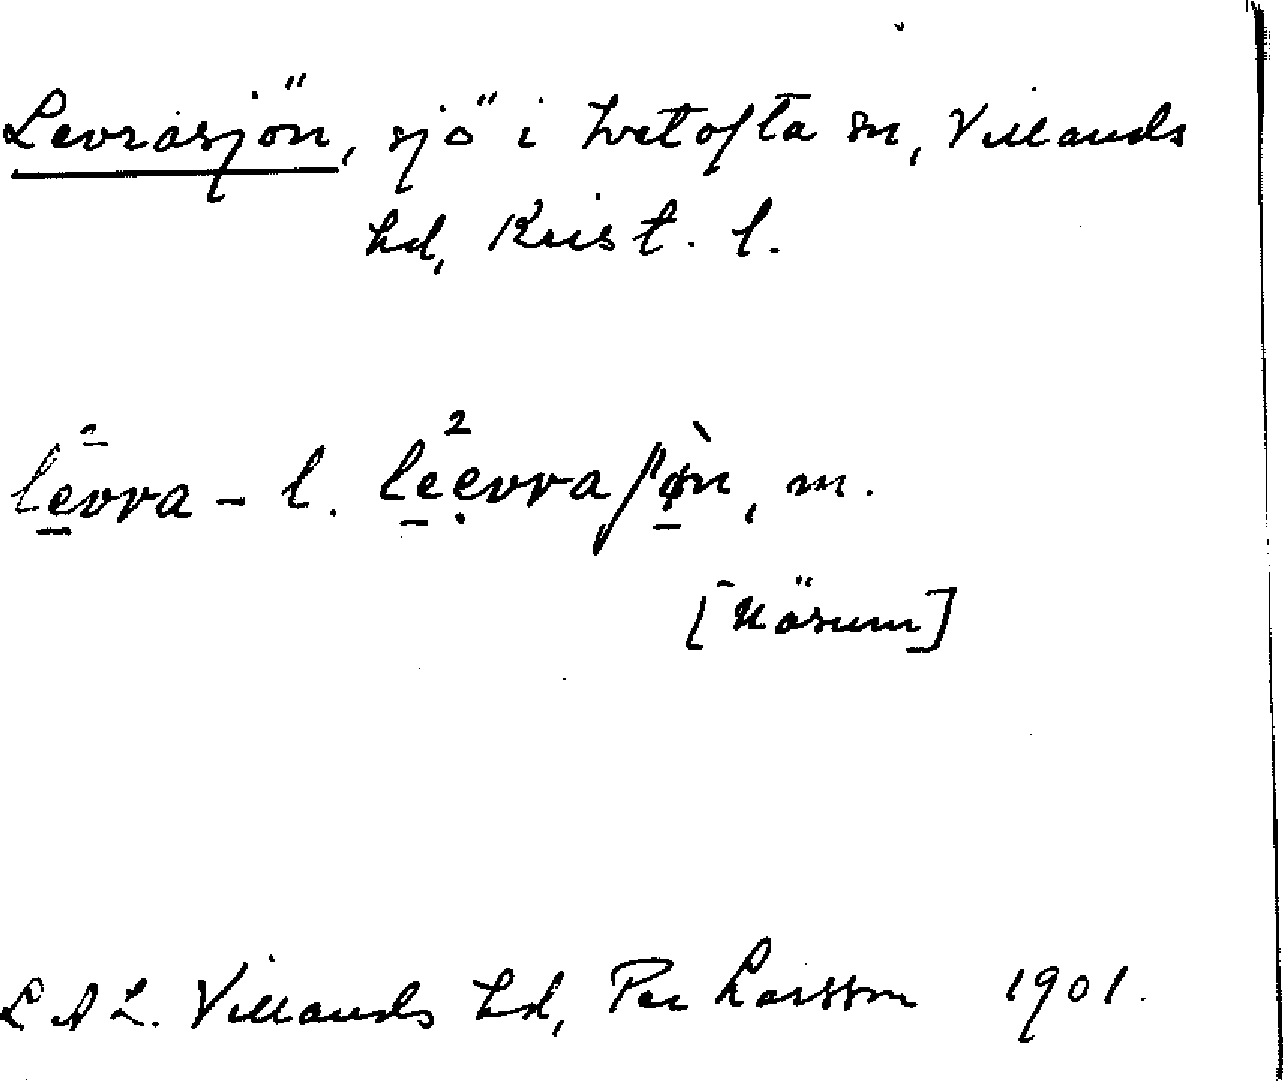 Levrasjön, sjö i Ivetofta sn, Villands
hd, Krist. l.
levra- l. leevraʃøn, m.
[Näsum]
L A L. Villands hd, Per Larsson 1901.